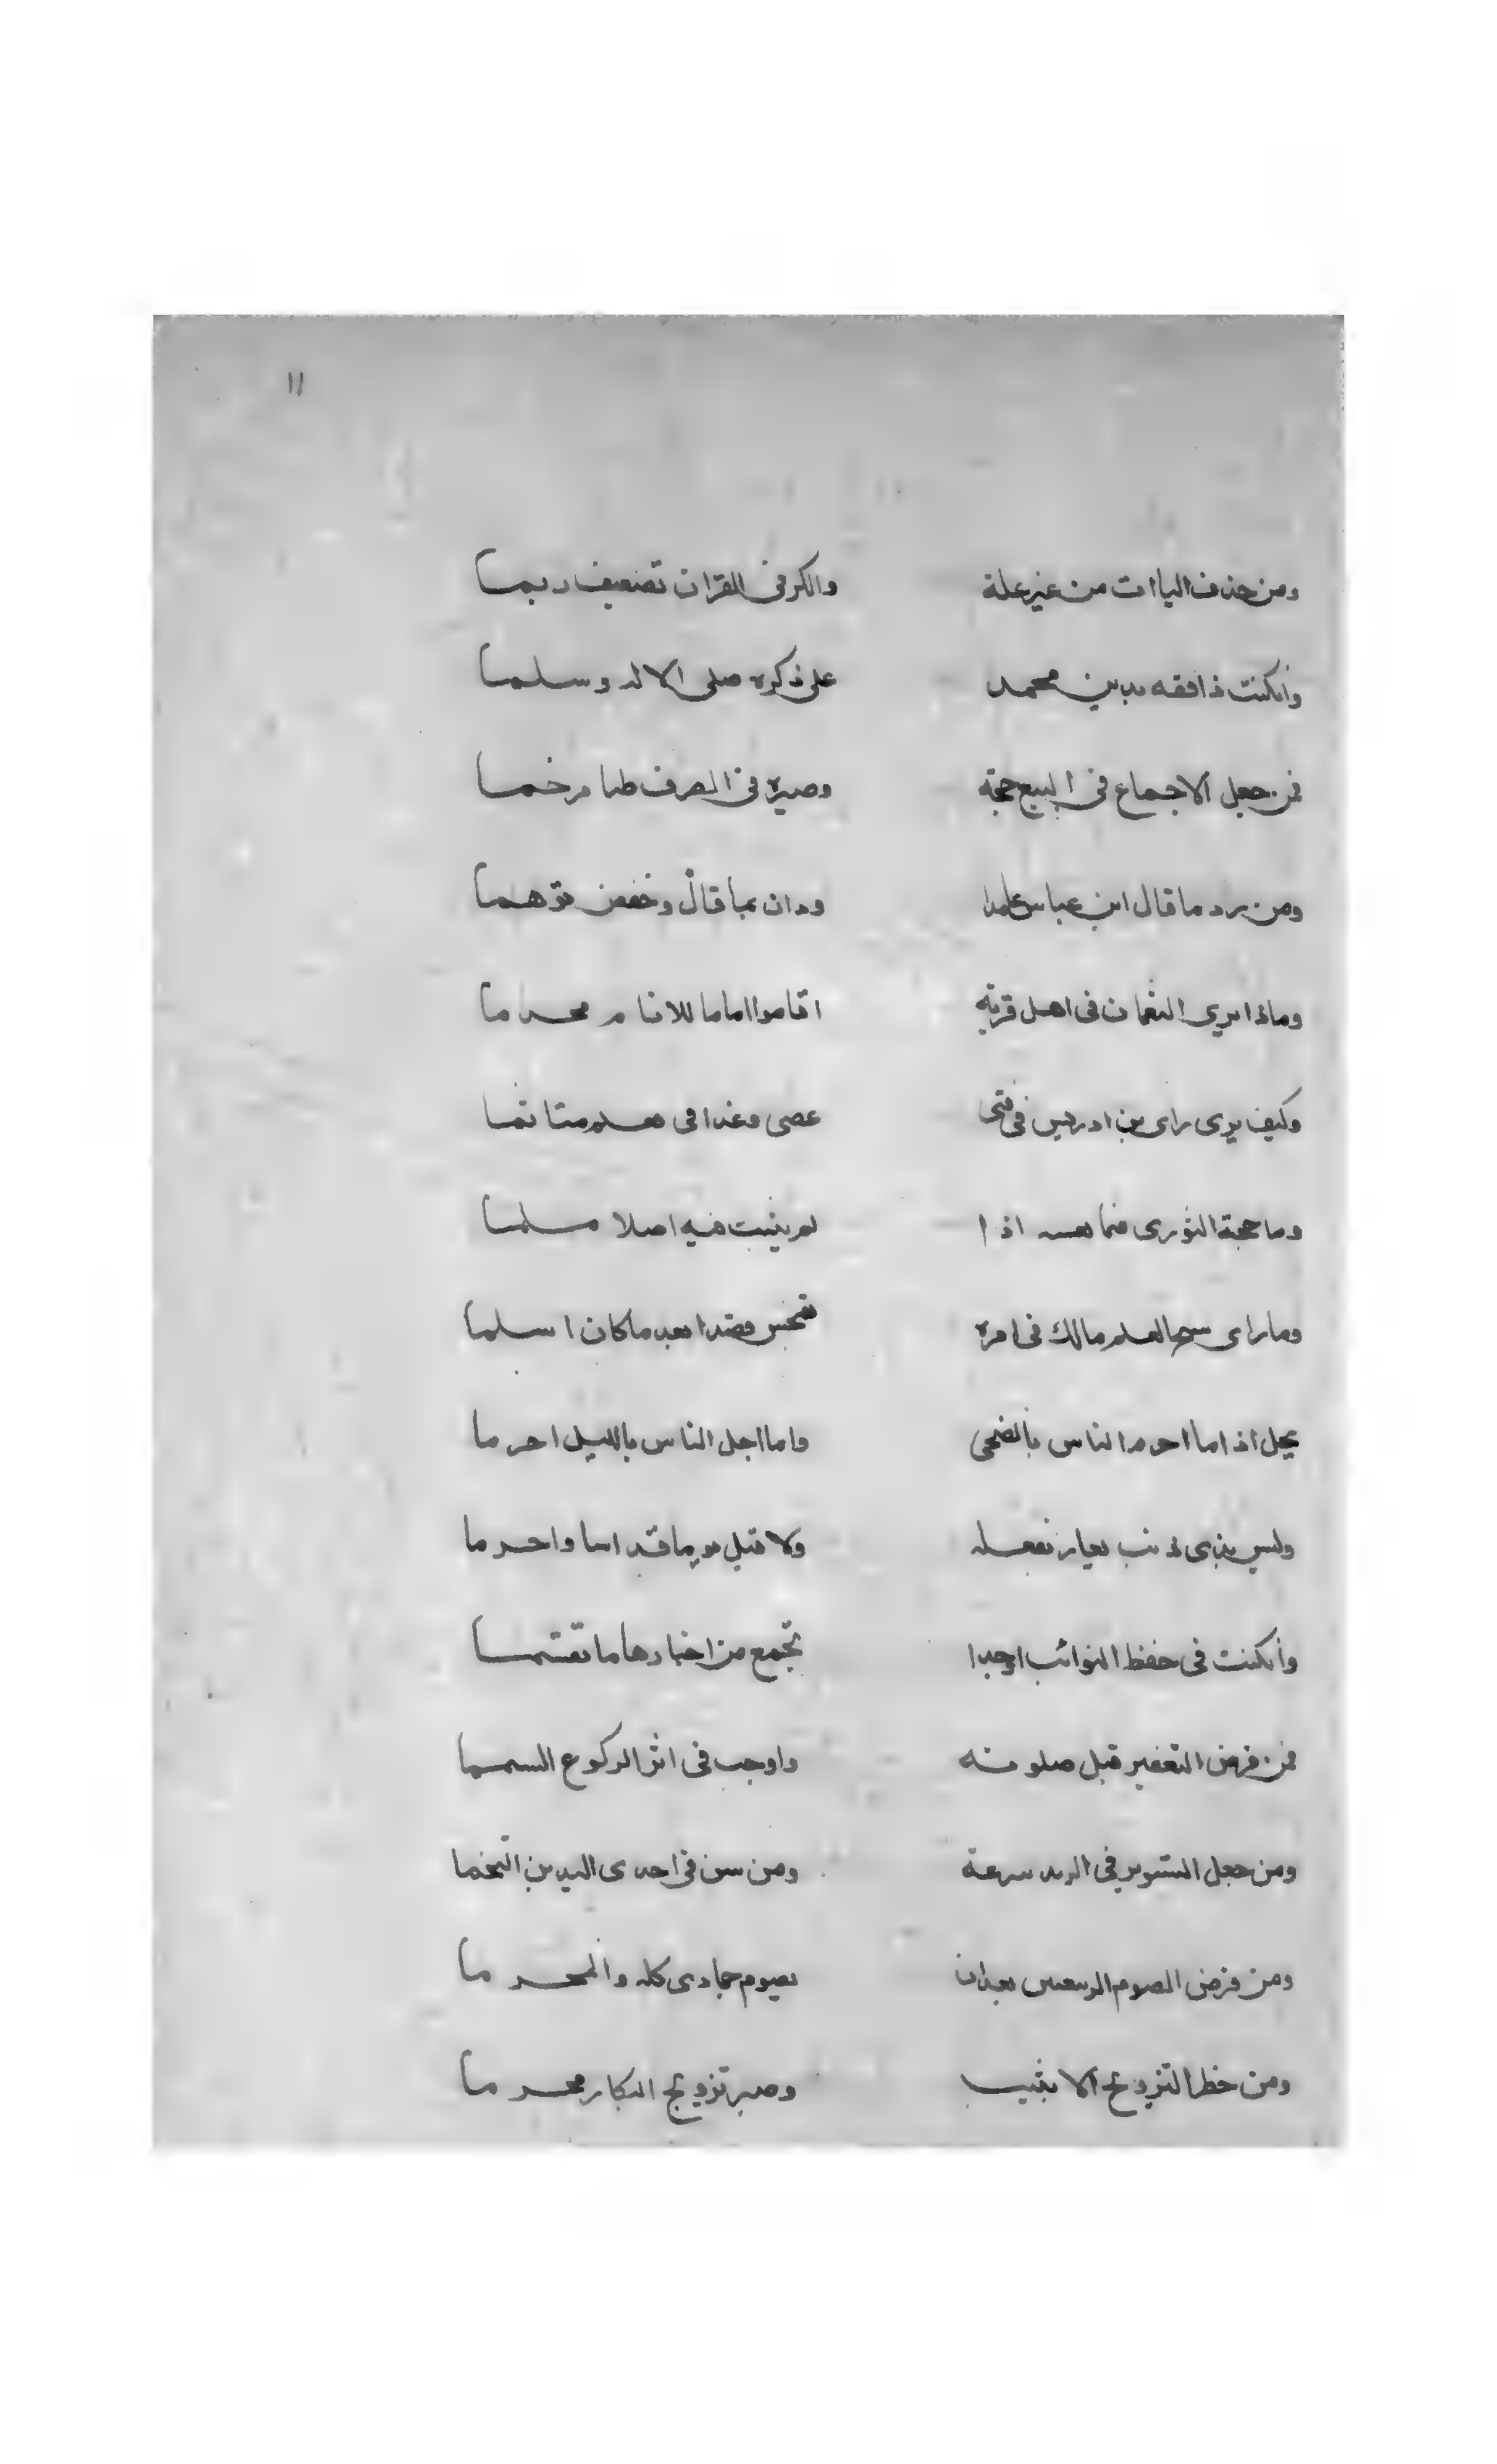 ١١
ومن حذف الياات من غير علة والكر فى القران تضعيف ربما
وانكنت ذا فقه بدين محمد على ذكره صلى الاله وسلما
فمن جعل الاجماع فى البيع حجة وصيره فى الصرف طبا مرخما
ومن رد ما قال ابن عباس عامدا ودان بما قال وخفض توهما
وماذا يرى النعمان فى اهل قرية اقاموا اماما للانام محرما
وكيف يرى راى بن ادريس فى فتى عصى وغدا فى
وما حجة الثورى فيما اذا لم يثبت فيه اصلا مسلما
وما راى العلم مالك فى امره قصدا بعد ما كان اسلما
يحل اذا ما احرم الناس بالضحى واما احل الناس بالليل احرما
وليس بذى ذنب يعاب بفعله ولا قيل قد اسا واجرما
وانكنت فى حفظ النوائب اوحدا تجمع من اخبارها ما تقسما
فمن فرض التعفير قبل صلوته واوجب فى اثر الركوع
ومن جعل فى ومن سن فى احدى اليدين التختما
ومن فرض الصوم بصوم جمادى كله والمحرما
ومن حظر التزويج الا بثيب وصير تزويج البكار محرما